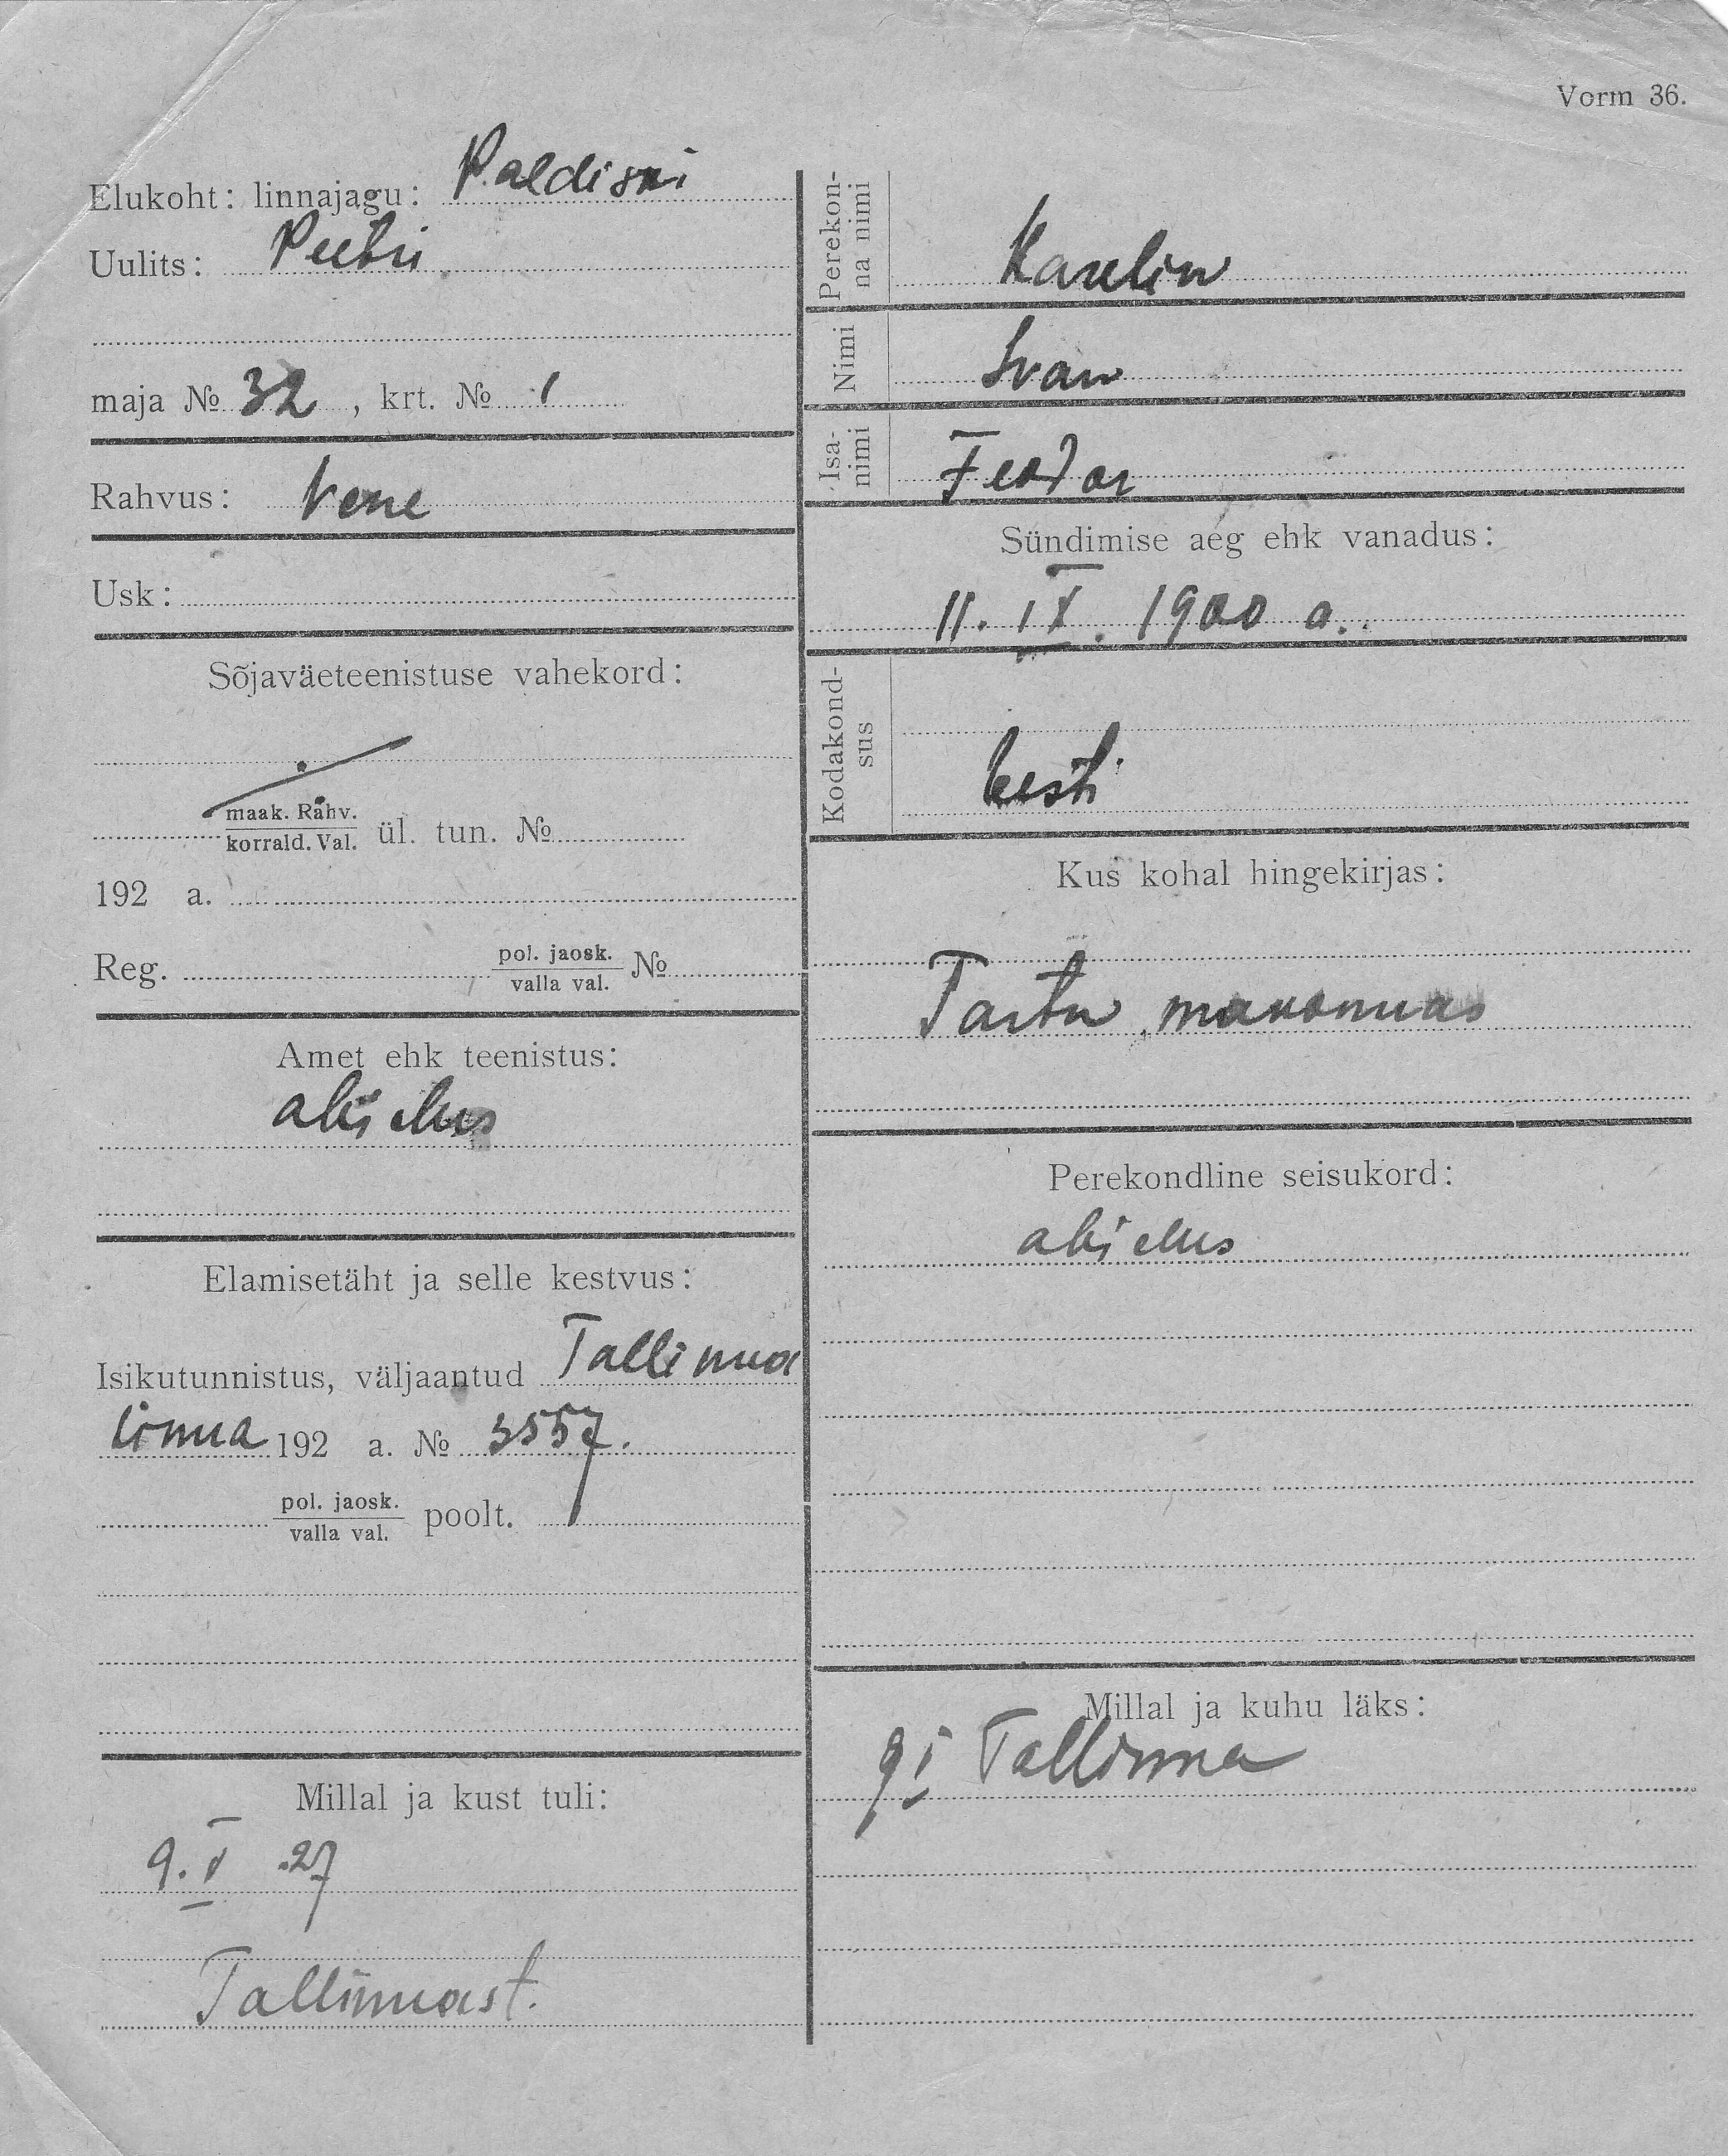 Vorm 36.
Elukoht: linnajagu: Paldiski
Uulits: Peetri
maja № 32, krt. № 1
Rahvus: Vene
Usk:
Sõjaväeteenistuse vahekord:
maak. Rahv.
korrald. Val. ül. tun. №
192 a.
Reg. pol. jaosk.
valla val. №
Amet ehk teenistus:
abielus
Elamisetäht ja selle kestvus:
Isikutunnistus, väljaantud Tallinna
linna 192 a. № 3557.
pol. jaosk.
valla val. poolt.
Millal ja kust tuli:
9. V .27
Tallinnast.
Perekon-
na nimi
Karelin
Nimi
Ivan
Isa-
nimi
Feodor
Sündimise aeg ehk vanadus:
11. IX. 1900 a.
Kodakond-
sus
Eesti
Kus kohal hingekirjas:
Tartu maakonnas
Perekondline seisukord:
abielus
Millal ja kuhu läks:
Tallinna